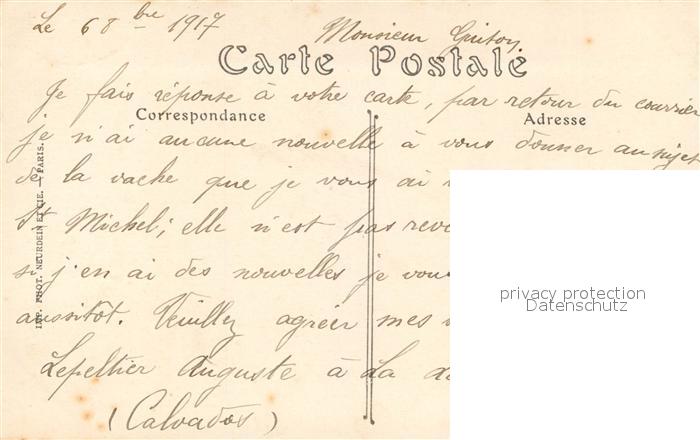 Le 6 8bre 1917 Monsieur Guiton
Carte Postale
Je fais réponse à votre carte, par retour du courrier
Correspondance Adresse
je n'ai aucune nouvelle à vous donner au sujet
de la vache que je vous ai
St Michel; elle n'est pas
si j'en ai des nouvelles je vous
aussitôt. Veuillez agréer mes
Lepeltier Auguste à La
(Calvados)
IMP. PHOT. NEURDEIN ET CIE. — PARIS.
privacy protection
Datenschutz